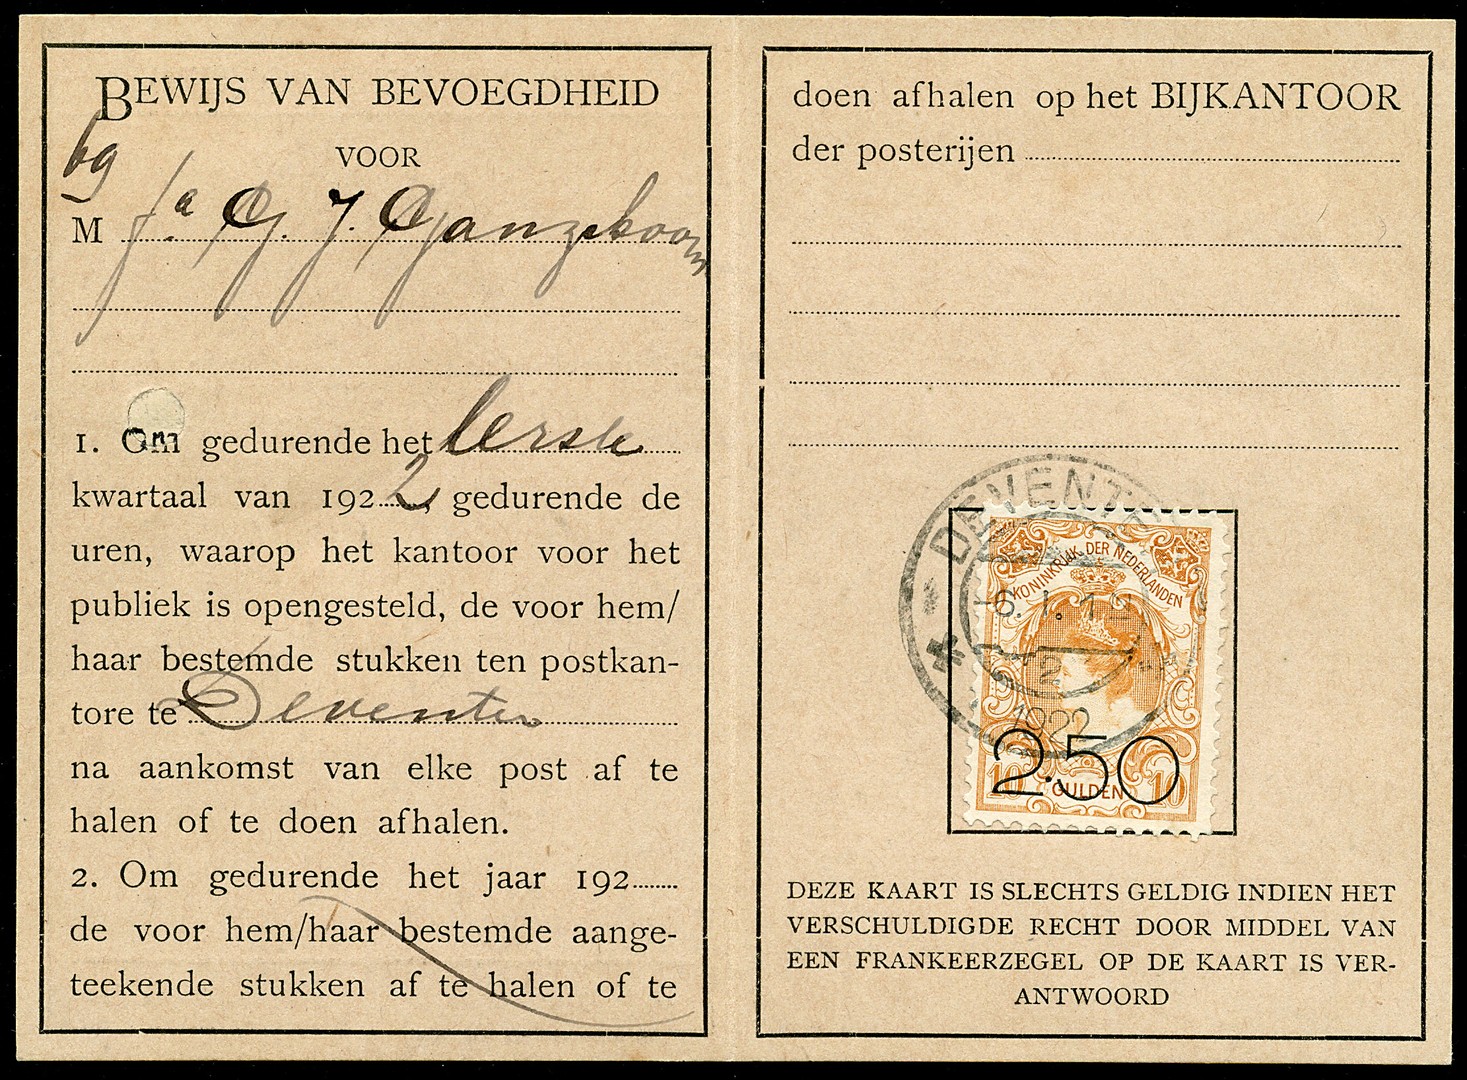 BEWIJS VAN BEVOEGDHEID
69
VOOR
M fa G. J. Ganzeboom
1. Om gedurende het Eerste
kwartaal van 1922, gedurende de
uren, waarop het kantoor voor het
publiek is opengesteld, de voor hem/
haar bestemde stukken ten postkan-
tore te Deventer
na aankomst van elke post af te
halen of te doen afhalen.
2. Om gedurende het jaar 192
de voor hem/haar bestemde aange-
teekende stukken af te halen of te
doen afhalen op het BIJKANTOOR
der posterijen
DEVENTE
KONINKRIJK DER NEDERLANDEN
1922
2.50
10 GULDEN 10
DEZE KAART IS SLECHTS GELDIG INDIEN HET
VERSCHULDIGDE RECHT DOOR MIDDEL VAN
EEN FRANKEERZEGEL OP DE KAART IS VER-
ANTWOORD